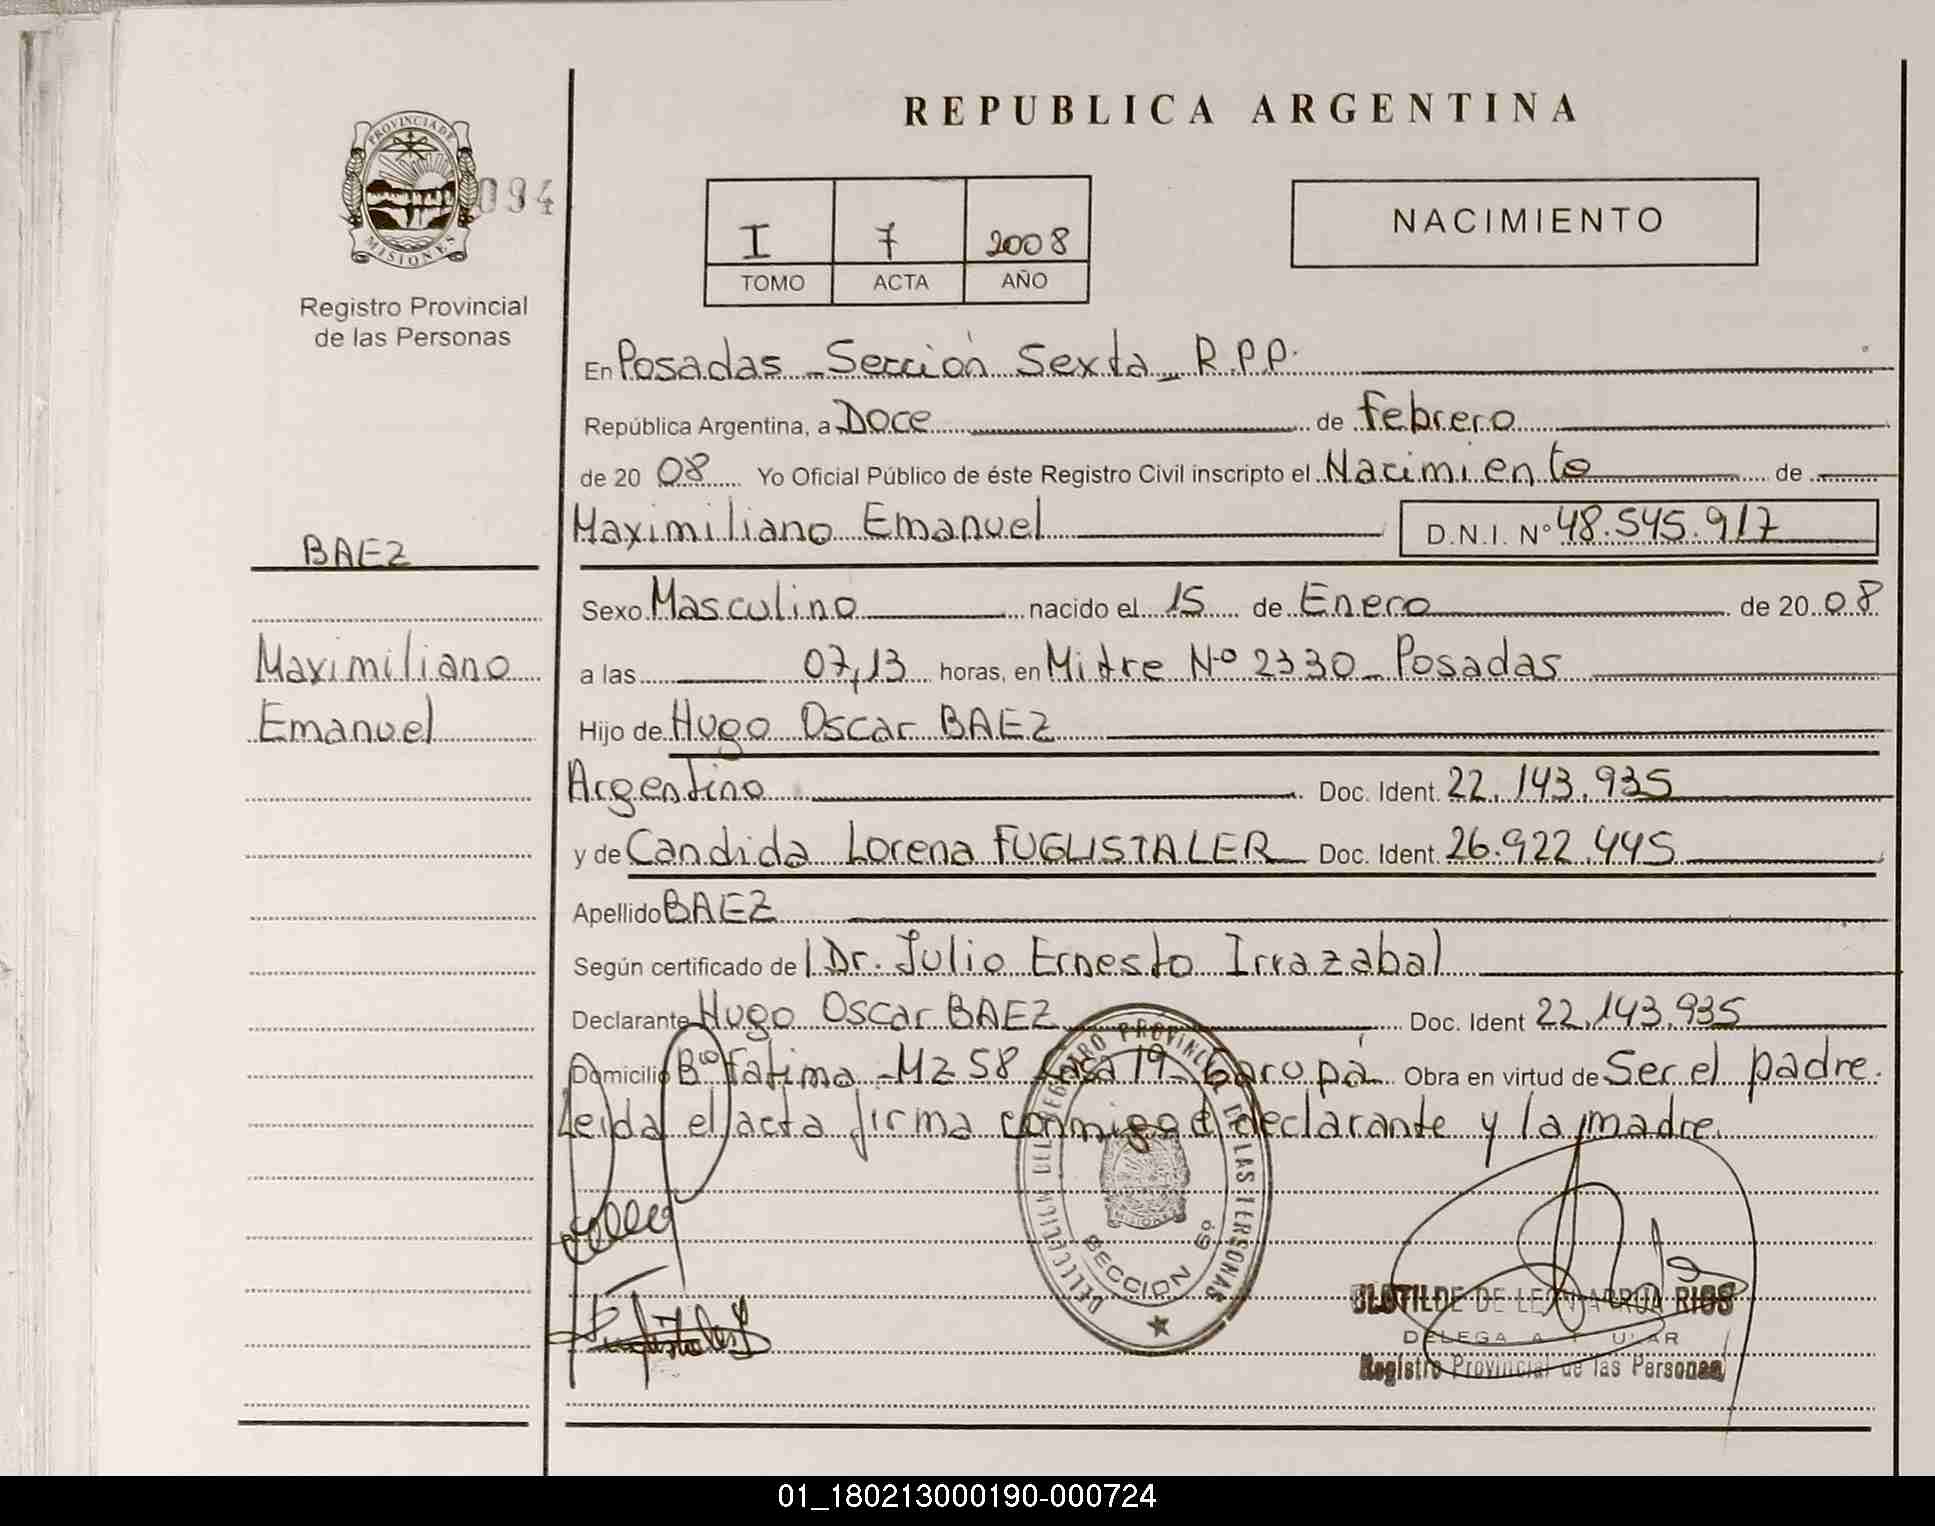 REPUBLICA ARGENTINA
PROVINCIA DE
MISIONES
094
Registro Provincial
de las Personas
I 7 2008
TOMO ACTA AÑO
NACIMIENTO
En Posadas - Sección Sexta - R.P.P.
República Argentina, a Doce de febrero
de 20 08 Yo Oficial Público de éste Registro Civil inscripto el Nacimiento de
Maximiliano Emanuel D.N.I. Nº 48.545.917
BAEZ
Maximiliano
Emanuel
Sexo Masculino nacido el 15 de Enero de 20 08
a las 07,13 horas, en Mitre Nº 2330 - Posadas
Hijo de Hugo Oscar BAEZ
Argentino Doc. Ident. 22.143.935
y de Candida Lorena FUGLISTALER Doc. Ident. 26.922.445
Apellido BAEZ
Según certificado de l Dr. Julio Ernesto Irrazabal
Declarante Hugo Oscar BAEZ Doc. Ident 22.143.935
Domicilio Bº Fatima - Mz 58 Casa 19 - Garupá Obra en virtud de Ser el padre.
Leida el acta firma conmigo el declarante y la madre.
DELEGACION DEL REGISTRO PROVINCIAL DE LAS PERSONAS
MISIONES
SECCION 6º
CLOTILDE DE LEON ARRUA RIOS
Registro Provincial de las Personas
01_180213000190-000724